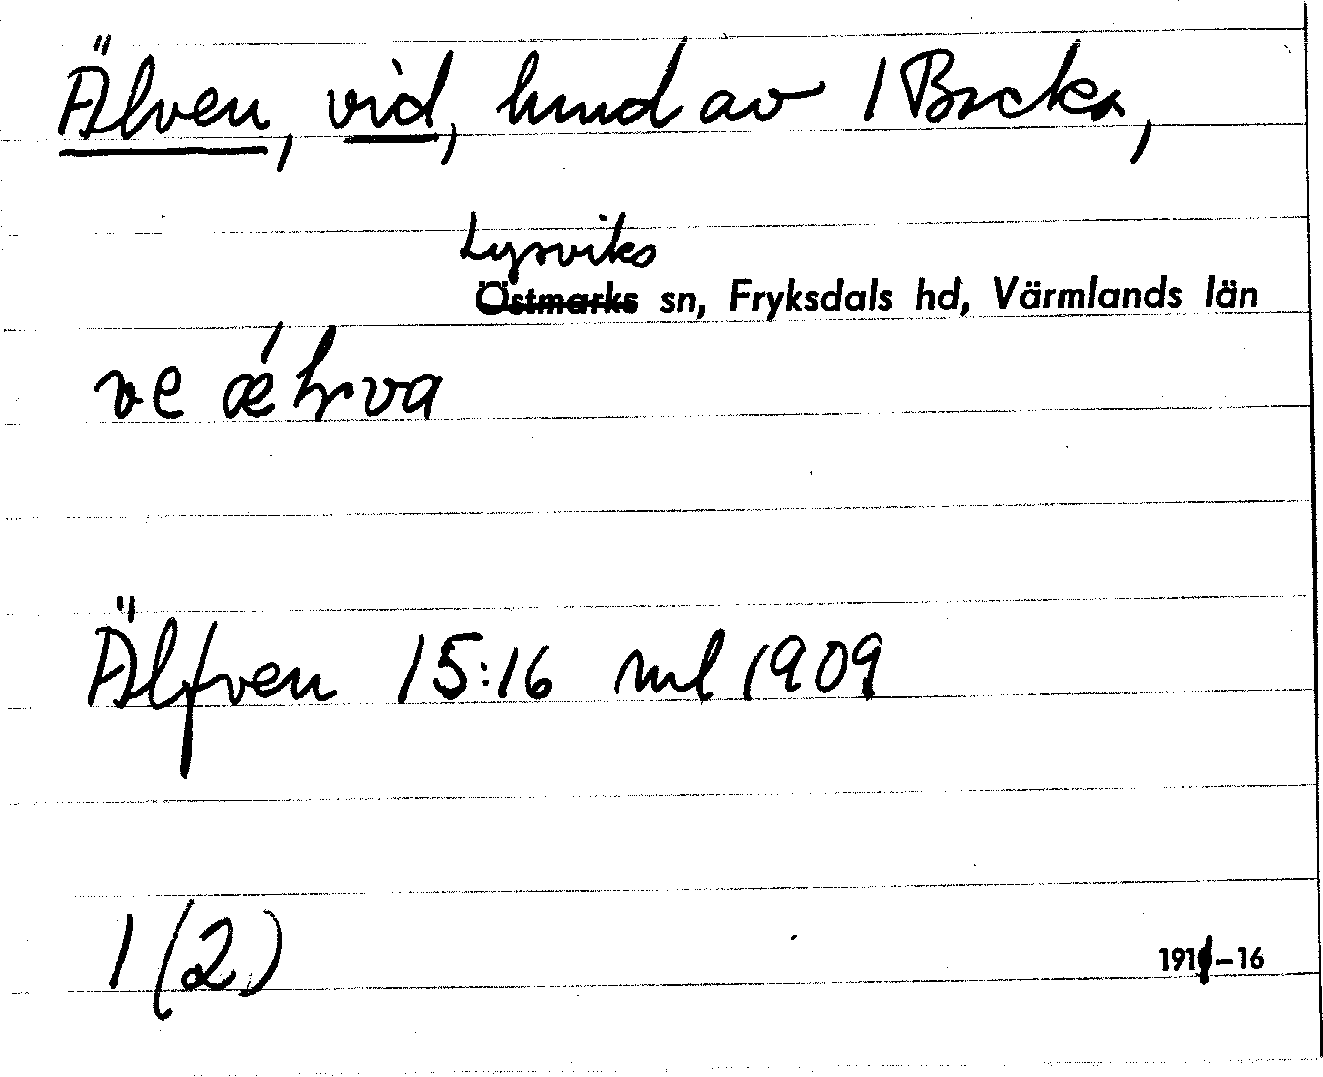 Älven, vid, hmd av 1 Backa,
Lysviks
Östmarks sn, Fryksdals hd, Värmlands län
ve
Älfven 15:16 ml 1909
1 (2)
1911-16